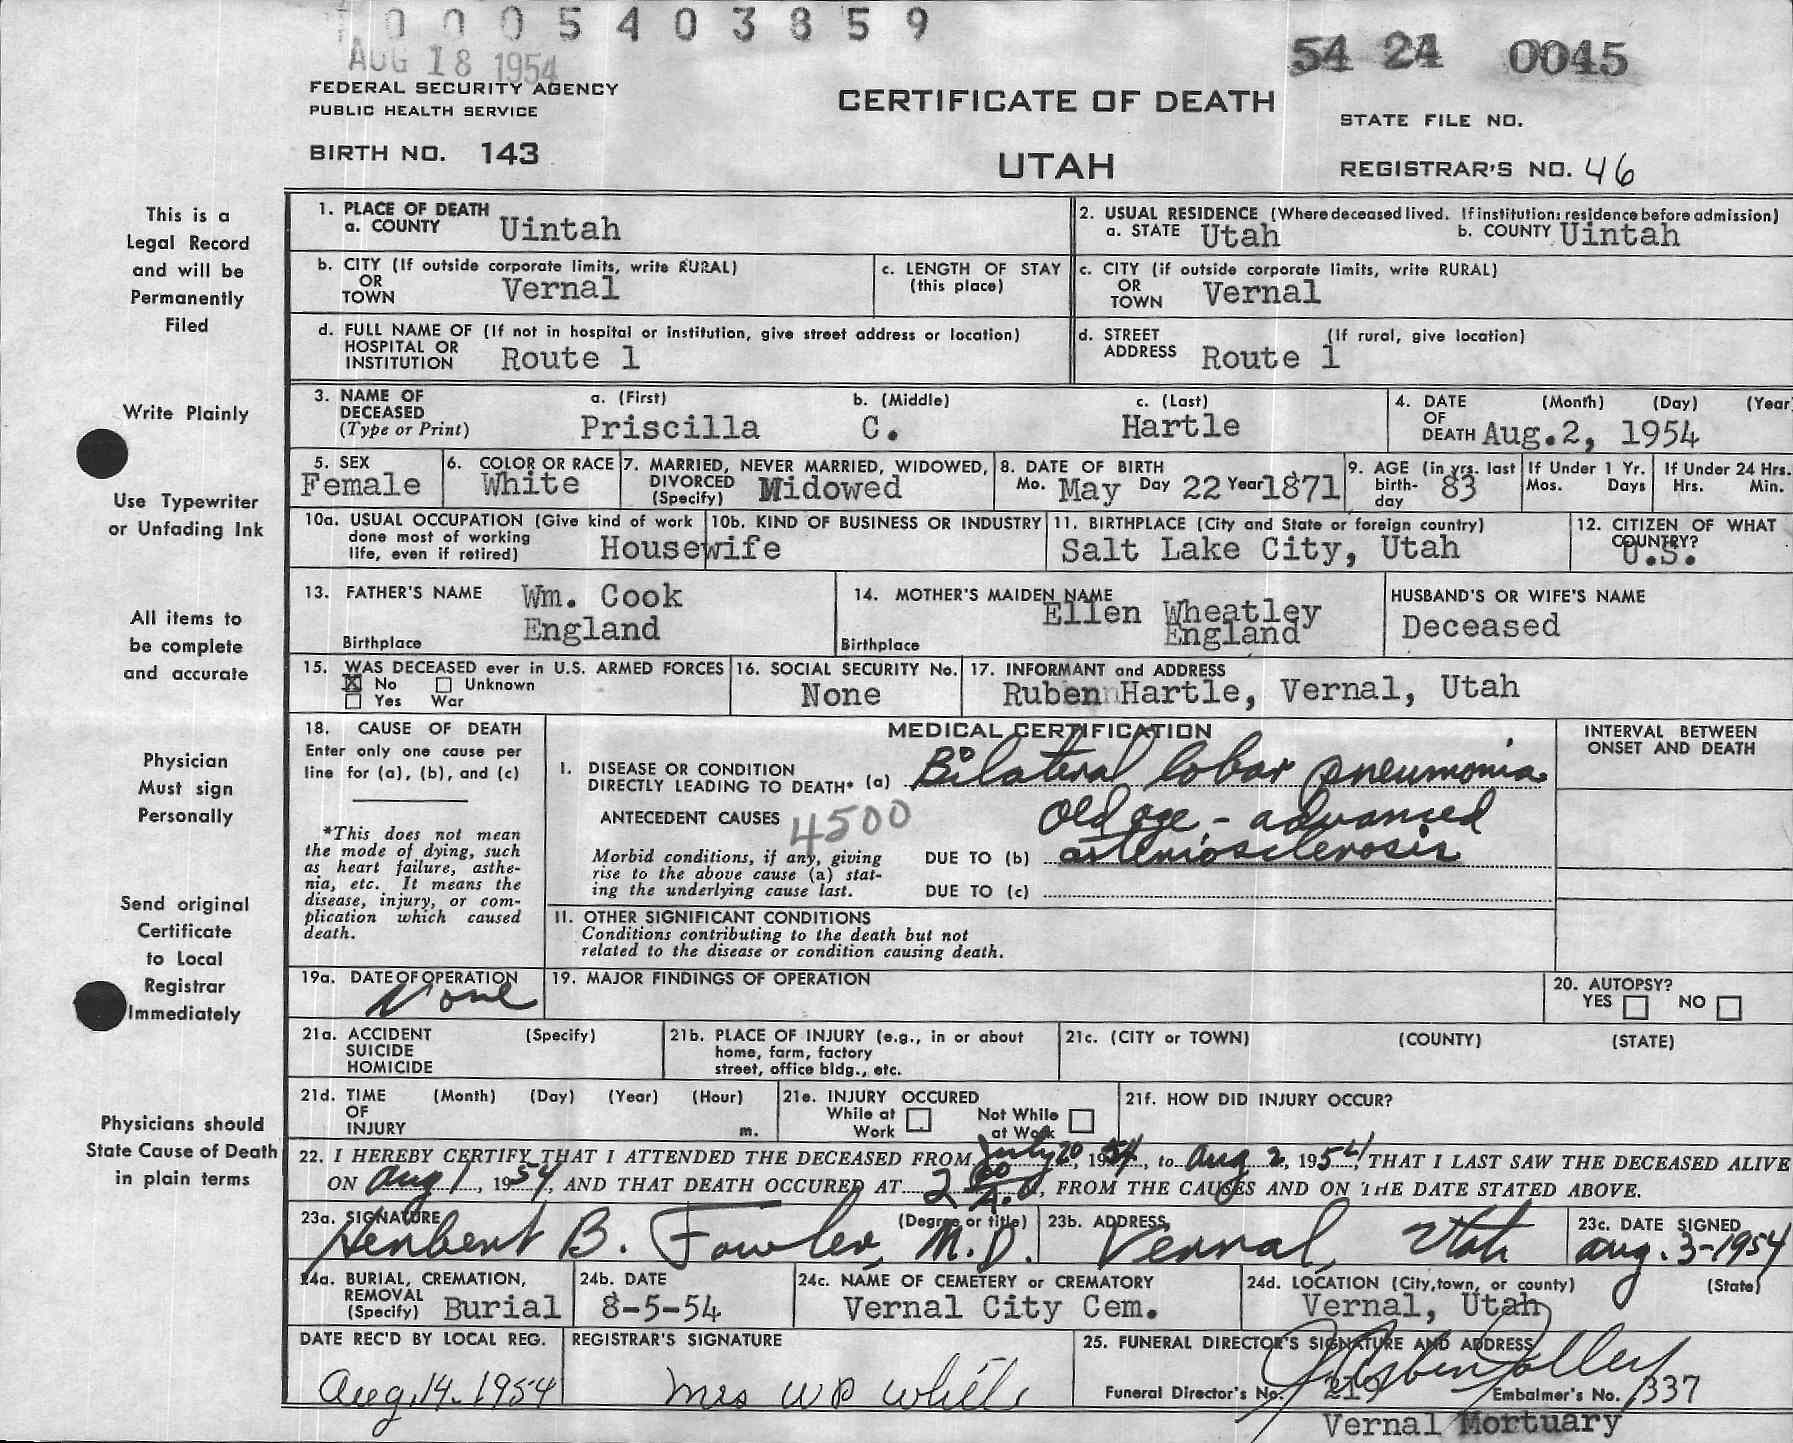 0005403859
AUG 18 1954
54 24 0045
FEDERAL SECURITY AGENCY
PUBLIC HEALTH SERVICE
CERTIFICATE OF DEATH
STATE FILE NO.
BIRTH NO. 143
UTAH
REGISTRAR'S NO. 46
This is a
Legal Record
and will be
Permanently
Filed
Write Plainly
Use Typewriter
or Unfading Ink
All items to
be complete
and accurate
Physician
Must sign
Personally
Send original
Certificate
to Local
Registrar
Immediately
Physicians should
State Cause of Death
in plain terms
1. PLACE OF DEATH
a. COUNTY Uintah
2. USUAL RESIDENCE (Where deceased lived. If institution: residence before admission)
a. STATE Utah b. COUNTY Uintah
b. CITY (If outside corporate limits, write RURAL)
OR
TOWN Vernal
c. LENGTH OF STAY
(this place)
c. CITY (if outside corporate limits, write RURAL)
OR
TOWN Vernal
d. FULL NAME OF (If not in hospital or institution, give street address or location)
HOSPITAL OR
INSTITUTION Route 1
d. STREET (If rural, give location)
ADDRESS Route 1
3. NAME OF a. (First) b. (Middle) c. (Last)
DECEASED
(Type or Print) Priscilla C. Hartle
4. DATE (Month) (Day) (Year
OF
DEATH Aug.2, 1954
5. SEX
Female
6. COLOR OR RACE
White
7. MARRIED, NEVER MARRIED, WIDOWED,
DIVORCED
(Specify) Midowed
8. DATE OF BIRTH
Mo. May Day 22 Year 1871
9. AGE (in yrs. last
birth-
day 83
If Under 1 Yr.
Mos. Days
If Under 24 Hrs.
Hrs. Min.
10a. USUAL OCCUPATION (Give kind of work
done most of working
life, even if retired) Housewife
10b. KIND OF BUSINESS OR INDUSTRY
11. BIRTHPLACE (City and State or foreign country)
Salt Lake City, Utah
12. CITIZEN OF WHAT
COUNTRY?
U.S.
13. FATHER'S NAME Wm. Cook
Birthplace England
14. MOTHER'S MAIDEN NAME
Ellen Wheatley
Birthplace England
HUSBAND'S OR WIFE'S NAME
Deceased
15. WAS DECEASED ever in U.S. ARMED FORCES
No Unknown
Yes War
16. SOCIAL SECURITY No.
None
17. INFORMANT and ADDRESS
Ruben Hartle, Vernal, Utah
18. CAUSE OF DEATH
Enter only one cause per
line for (a), (b), and (c)
*This does not mean
the mode of dying, such
as heart failure, asthe-
nia, etc. It means the
disease, injury, or com-
plication which caused
death.
MEDICAL CERTIFICATION
I. DISEASE OR CONDITION
DIRECTLY LEADING TO DEATH* (a) Bilateral lobar pneumonia
ANTECEDENT CAUSES 4500 Old age - advanced
Morbid conditions, if any, giving
rise to the above cause (a) stat-
ing the underlying cause last.
DUE TO (b) arteriosclerosis
DUE TO (c)
II. OTHER SIGNIFICANT CONDITIONS
Conditions contributing to the death but not
related to the disease or condition causing death.
INTERVAL BETWEEN
ONSET AND DEATH
19a. DATE OF OPERATION
None
19. MAJOR FINDINGS OF OPERATION
20. AUTOPSY?
YES NO
21a. ACCIDENT (Specify)
SUICIDE
HOMICIDE
21b. PLACE OF INJURY (e.g., in or about
home, farm, factory
street, office bldg., etc.
21c. (CITY or TOWN) (COUNTY) (STATE)
21d. TIME (Month) (Day) (Year) (Hour)
OF
INJURY m.
21e. INJURY OCCURED
While at Not While
Work at Work
21f. HOW DID INJURY OCCUR?
22. I HEREBY CERTIFY THAT I ATTENDED THE DECEASED FROM July 20, 1954, to Aug 2, 1954, THAT I LAST SAW THE DECEASED ALIVE
ON Aug 1, 1954, AND THAT DEATH OCCURED AT 2 00 A., FROM THE CAUSES AND ON THE DATE STATED ABOVE.
23a. SIGNATURE (Degree or title)
Herbert B. Fowler, M.D.
23b. ADDRESS
Vernal, Utah
23c. DATE SIGNED
Aug. 3-1954
24a. BURIAL, CREMATION,
REMOVAL
(Specify) Burial
24b. DATE
8-5-54
24c. NAME OF CEMETERY or CREMATORY
Vernal City Cem.
24d. LOCATION (City, town, or county) (State)
Vernal, Utah
DATE REC'D BY LOCAL REG.
Aug. 14. 1954
REGISTRAR'S SIGNATURE
Mrs W P White
25. FUNERAL DIRECTOR'S SIGNATURE AND ADDRESS
Funeral Director's No. 219 Embalmer's No. 337
Vernal Mortuary